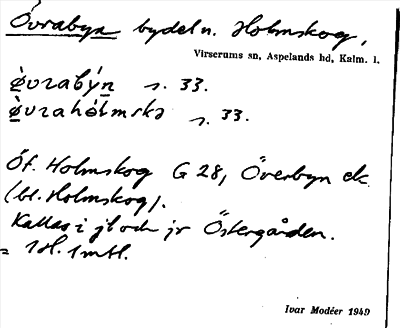 Övrabyn bydel n. Holmskog,
Virserums sn, Aspelands hd, Kalm. l.
ø̀vrabýn s. 33.
ø̀vrahólmskə s. 33.
Öf. Holmskog G 28, Överbyn ek.
(bl. Holmskog).
Kallas i jb och jr Östergården.
= 1H. 1mtl.
Ivar Modéer 1949